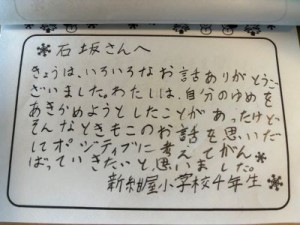 石坂さんへ
きょうは、いろいろなお話ありがとうご
ざいました。わたしは、自分のゆめを
あきらめようとしたことがあったけど
そんなときもこのお話を思いだ
してポジティブに考えてがん
ばっていきたいと思いました。
新紺屋小学校4年生